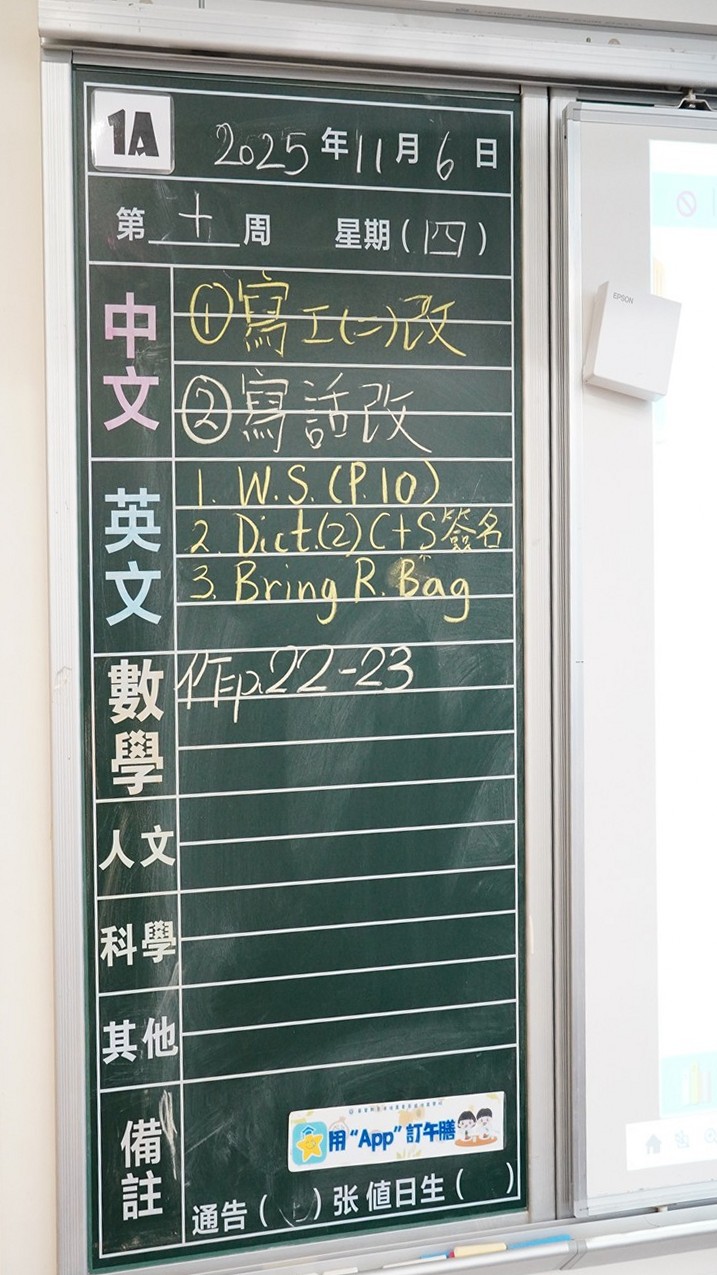 1A
2025年11月6日
第十周 星期(四)
中文
①寫工(二)改
②寫話改
英文
1. W.S. (P.10)
2. Dict.(2) C+S簽名
3. Bring R. Bag
數學
作p.22-23
人文
科學
其他
備註
用“App”訂午膳
通告( )张 值日生( )
EPSON